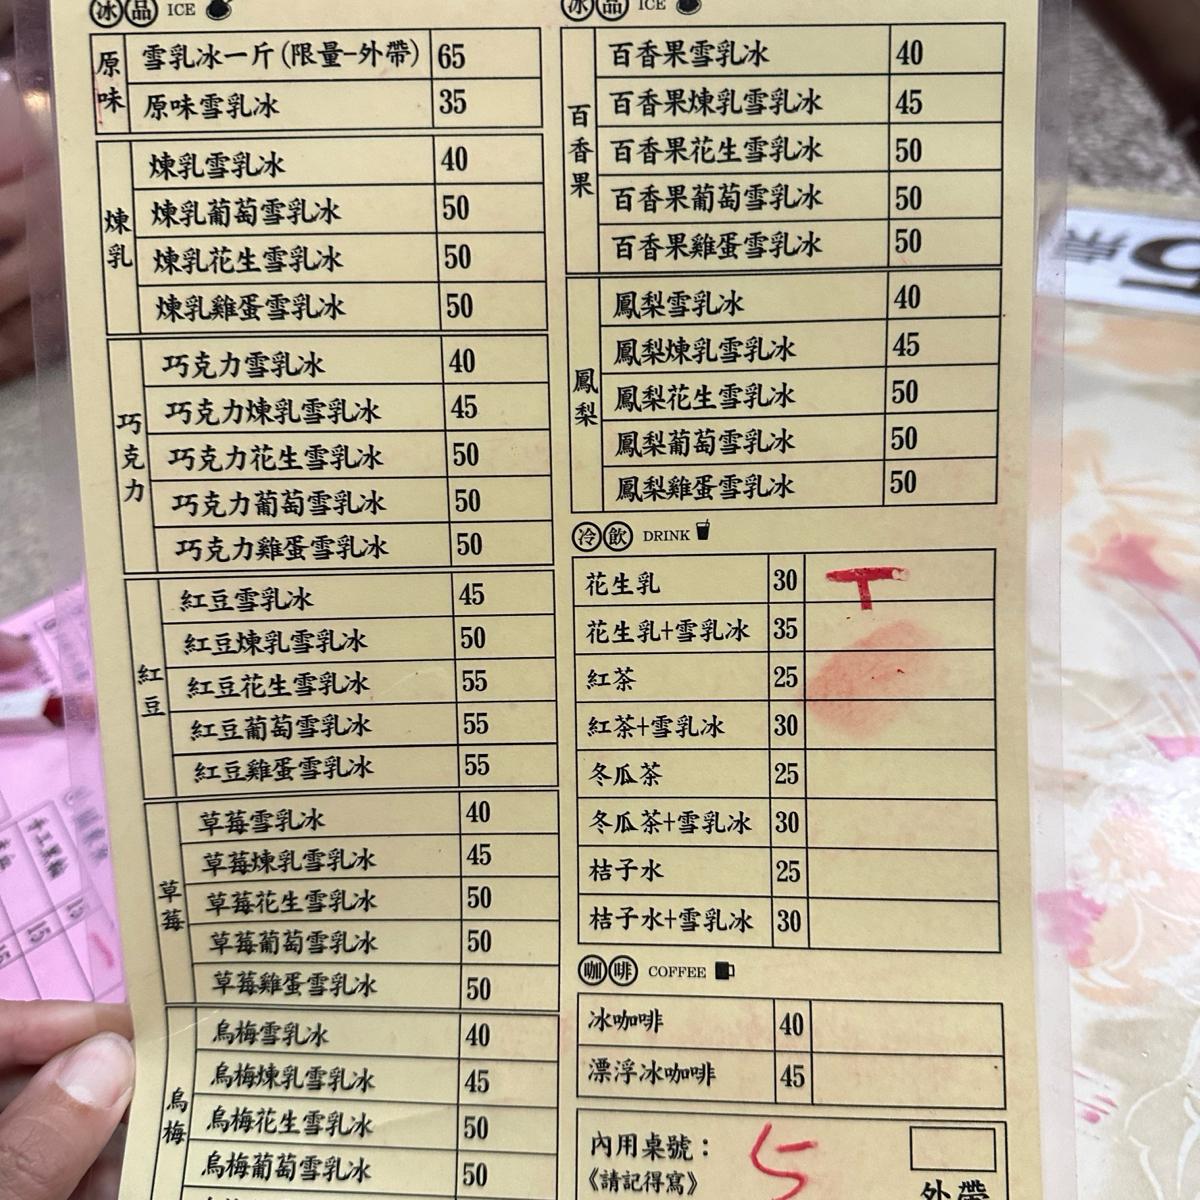 冰品 ICE
原味
雪乳冰一斤(限量-外帶) 65
原味雪乳冰 35
煉乳
煉乳雪乳冰 40
煉乳葡萄雪乳冰 50
煉乳花生雪乳冰 50
煉乳雞蛋雪乳冰 50
巧克力
巧克力雪乳冰 40
巧克力煉乳雪乳冰 45
巧克力花生雪乳冰 50
巧克力葡萄雪乳冰 50
巧克力雞蛋雪乳冰 50
紅豆
紅豆雪乳冰 45
紅豆煉乳雪乳冰 50
紅豆花生雪乳冰 55
紅豆葡萄雪乳冰 55
紅豆雞蛋雪乳冰 55
草莓
草莓雪乳冰 40
草莓煉乳雪乳冰 45
草莓花生雪乳冰 50
草莓葡萄雪乳冰 50
草莓雞蛋雪乳冰 50
烏梅
烏梅雪乳冰 40
烏梅煉乳雪乳冰 45
烏梅花生雪乳冰 50
烏梅葡萄雪乳冰 50
冰品 ICE
百香果
百香果雪乳冰 40
百香果煉乳雪乳冰 45
百香果花生雪乳冰 50
百香果葡萄雪乳冰 50
百香果雞蛋雪乳冰 50
鳳梨
鳳梨雪乳冰 40
鳳梨煉乳雪乳冰 45
鳳梨花生雪乳冰 50
鳳梨葡萄雪乳冰 50
鳳梨雞蛋雪乳冰 50
冷飲 DRINK
花生乳 30 T
花生乳+雪乳冰 35
紅茶 25
紅茶+雪乳冰 30
冬瓜茶 25
冬瓜茶+雪乳冰 30
桔子水 25
桔子水+雪乳冰 30
咖啡 COFFEE
冰咖啡 40
漂浮冰咖啡 45
內用桌號： 5
《請記得寫》
外帶